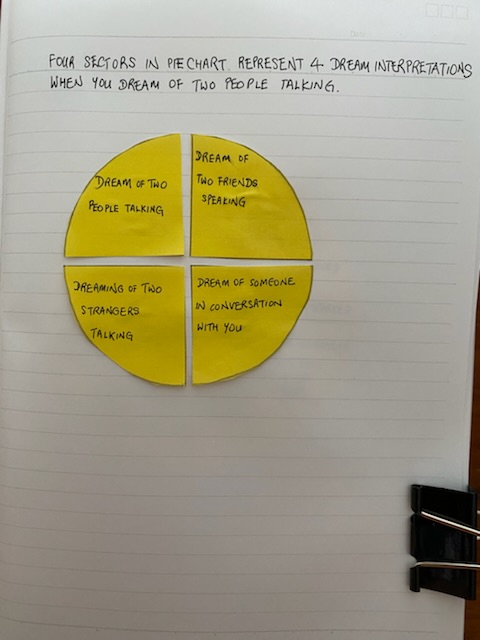 Date
FOUR SECTORS IN PIECHART. REPRESENT 4 DREAM INTERPRETATIONS
WHEN YOU DREAM OF TWO PEOPLE TALKING.
DREAM OF TWO
PEOPLE TALKING
DREAM OF
TWO FRIENDS
SPEAKING
DREAMING OF TWO
STRANGERS
TALKING
DREAM OF SOMEONE
IN CONVERSATION
WITH YOU